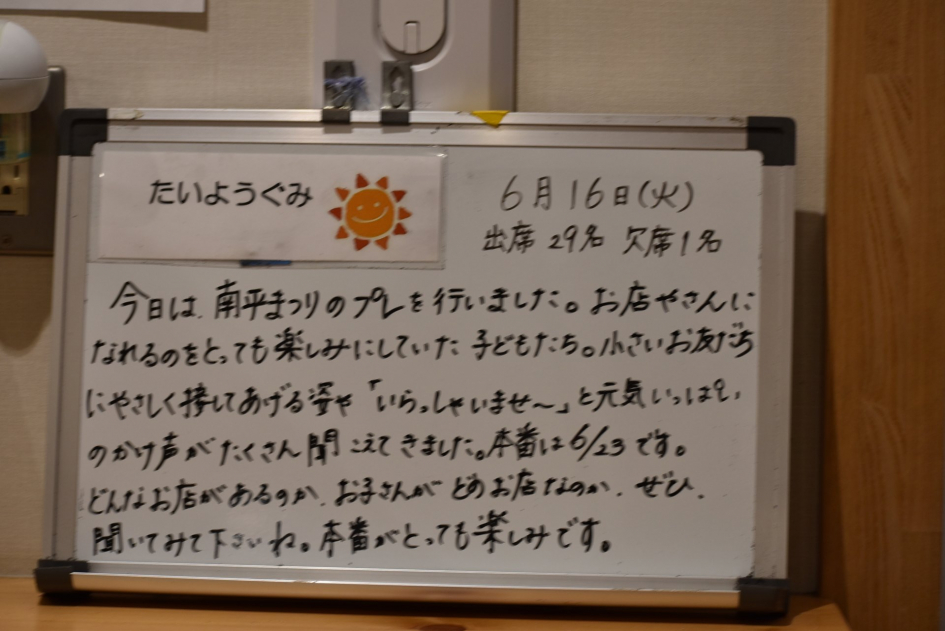 たいようぐみ
6月16日(火)
出席 29名 欠席1名
今日は、南平まつりのプレを行いました。お店やさんに
なれるのをとっても楽しみにしていた子どもたち。小さいお友だち
にやさしく接してあげる姿や「いらっしゃいませ〜」と元気いっぱい
のかけ声がたくさん聞こえてきました。本番は6/23です。
どんなお店があるのか、お子さんがどのお店なのか、ぜひ、
聞いてみて下さいね。本番がとっても楽しみです。